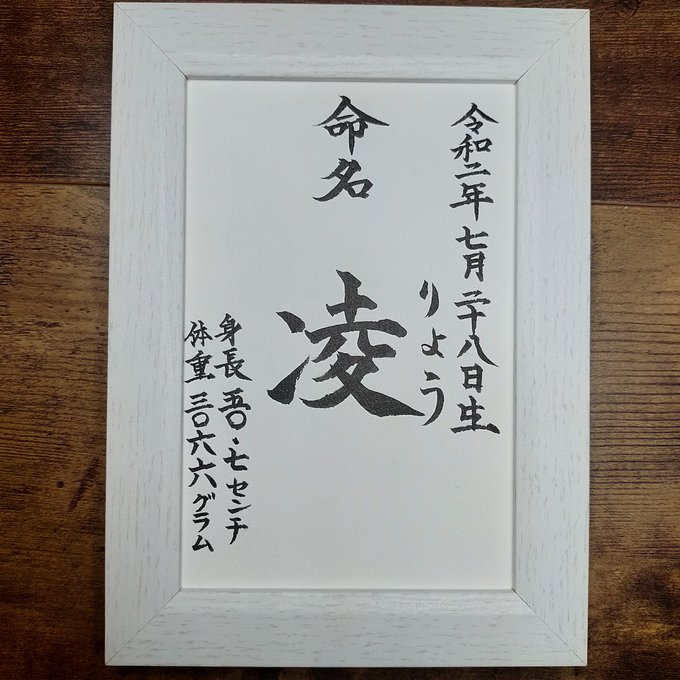 令和二年七月二十八日生
りょう
命名
凌
身長五〇・七センチ
体重三〇六六グラム